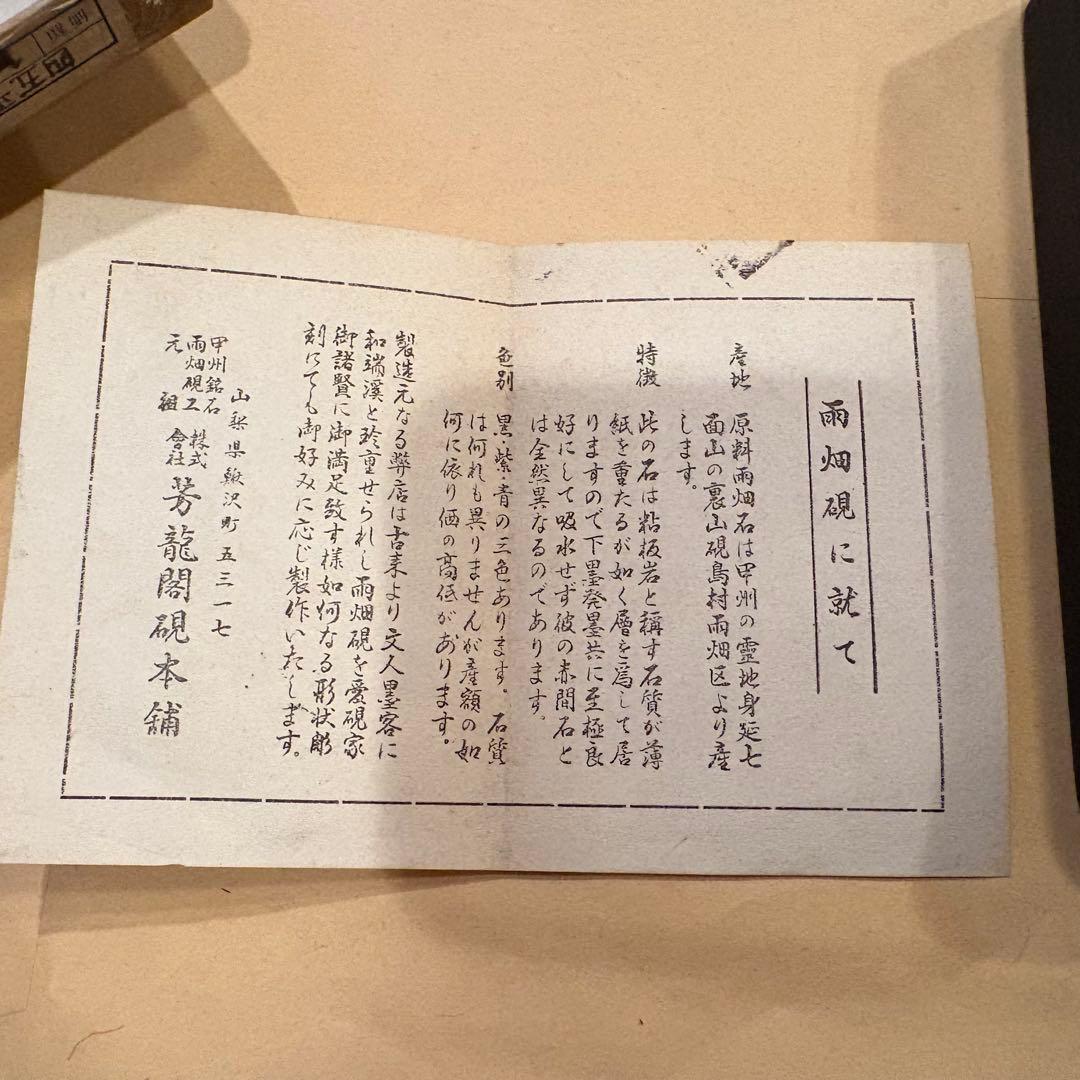 雨畑硯に就て
産地 原料雨畑石は甲州の霊地身延七
面山の裏山硯島村雨畑区より産
します。
特徴 此の石は粘板岩と稱す石質が薄
紙を重たるが如く層を為して居
りますので下墨発墨共に至極良
好にして吸水せず彼の赤間石と
は全然異なるのであります。
色別 黒・紫・青の三色あります。石質
は何れも異りませんが産額の如
何に依り価の高低があります。
製造元なる弊店は古来より文人墨客に
和端溪と珍重せられし雨畑硯を愛硯家
御諸賢に御満足致す様如何なる形状彫
刻にても御好みに応じ製作いたします。
山梨県鰍沢町五三一七
甲州銘石
雨畑硯工
元祖
株式
會社
芳龍閣硯本舗
四五